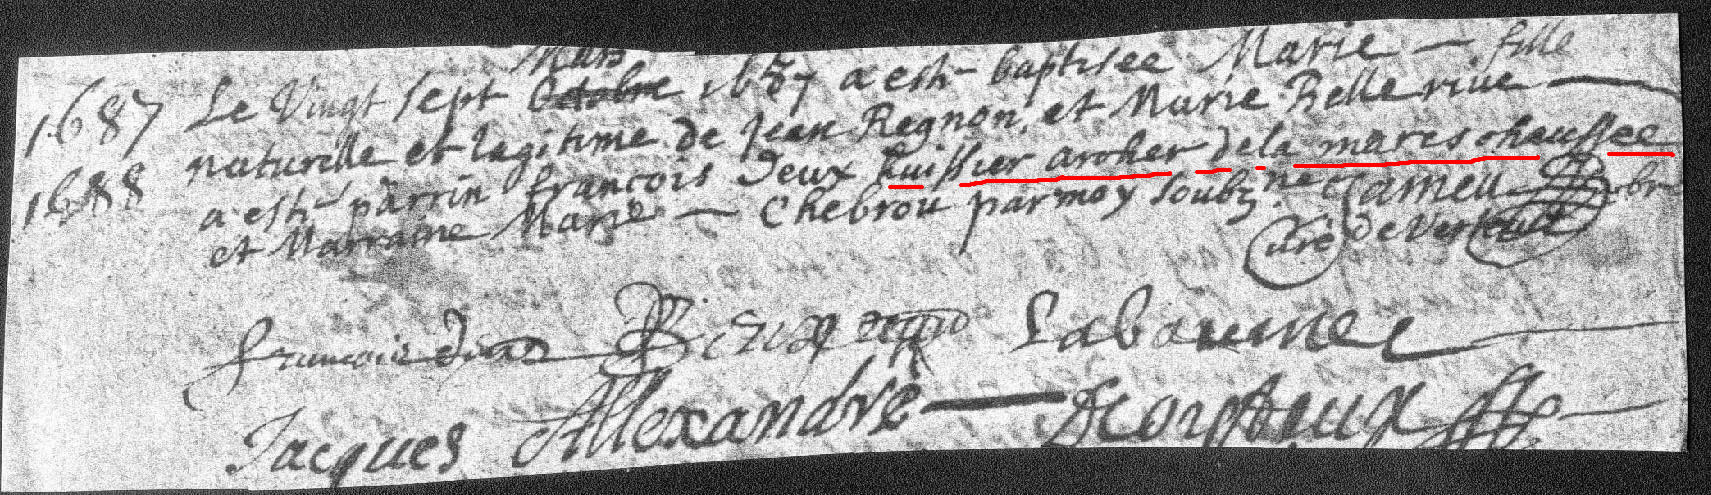 Mars
1687 Le Vingt sept Octobre 1687 a esh baptisee Marie — fille
naturelle et legitime de Jean Regnon, et Marie Bellerive —
1688 a esh parrin francois Deux huissier archer de la mareschaussee
et Marraine Marie — Chebrou par moy soubz. ne Cameu
curé de Vertault
francois deux Labaume
Jacques Allexandre —